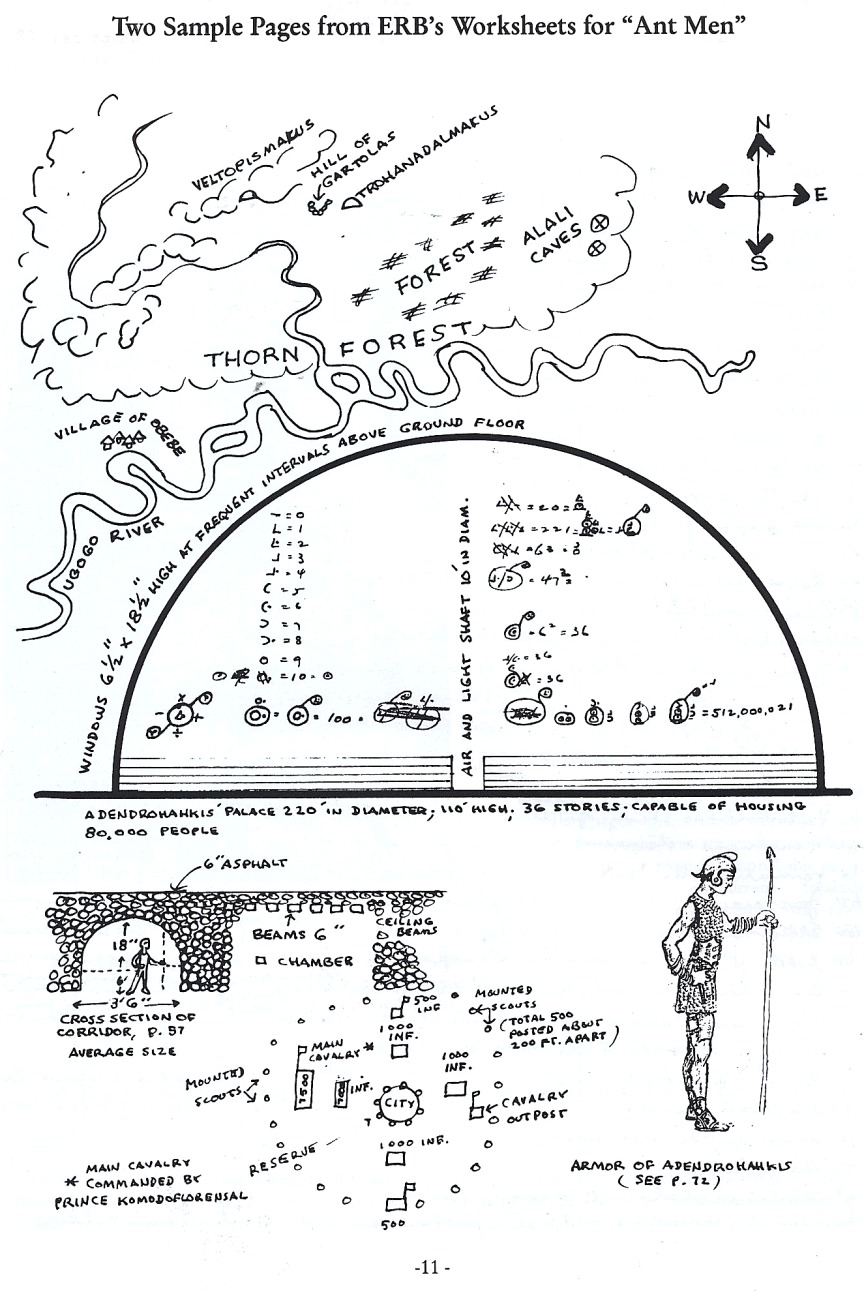 Two Sample Pages from ERB's Worksheets for "Ant Men"
N
W E
S
VELTOPISMAKUS
HILL OF
GARTOLAS
TROHANADALMAKUS
FOREST
ALALI
CAVES
THORN FOREST
VILLAGE OF OBEBE
UGOGO RIVER
WINDOWS 6½" X 18½" HIGH AT FREQUENT INTERVALS ABOVE GROUND FLOOR
AIR AND LIGHT SHAFT 10' IN DIAM.
= 0
= 1
= 2
= 3
= 4
= 5
= 6
= 7
= 8
= 9
= 10 =
= 100 =
= 20 =
= 221 =
= 63
= 47
= 6² = 36
= 36
= 36
= 512,000,021
ADENDROHAHKIS' PALACE 220' IN DIAMETER; 110' HIGH; 36 STORIES; CAPABLE OF HOUSING
80,000 PEOPLE
6" ASPHALT
18"
6"
3'6"
BEAMS 6"
CHAMBER
CEILING
BEAMS
CROSS SECTION OF
CORRIDOR, P. 57
AVERAGE SIZE
500
INF
1000
INF.
MOUNTED
SCOUTS
(TOTAL 500
POSTED ABOUT
200 FT. APART)
MAIN
CAVALRY *
7500
7000
INF.
1000
INF.
MOUNTED
SCOUTS
CITY
CAVALRY
OUTPOST
1000 INF.
RESERVE
500
MAIN CAVALRY
* COMMANDED BY
PRINCE KOMODOFLORENSAL
ARMOR OF ADENDROHAHKIS
(SEE P. 72)
-11-